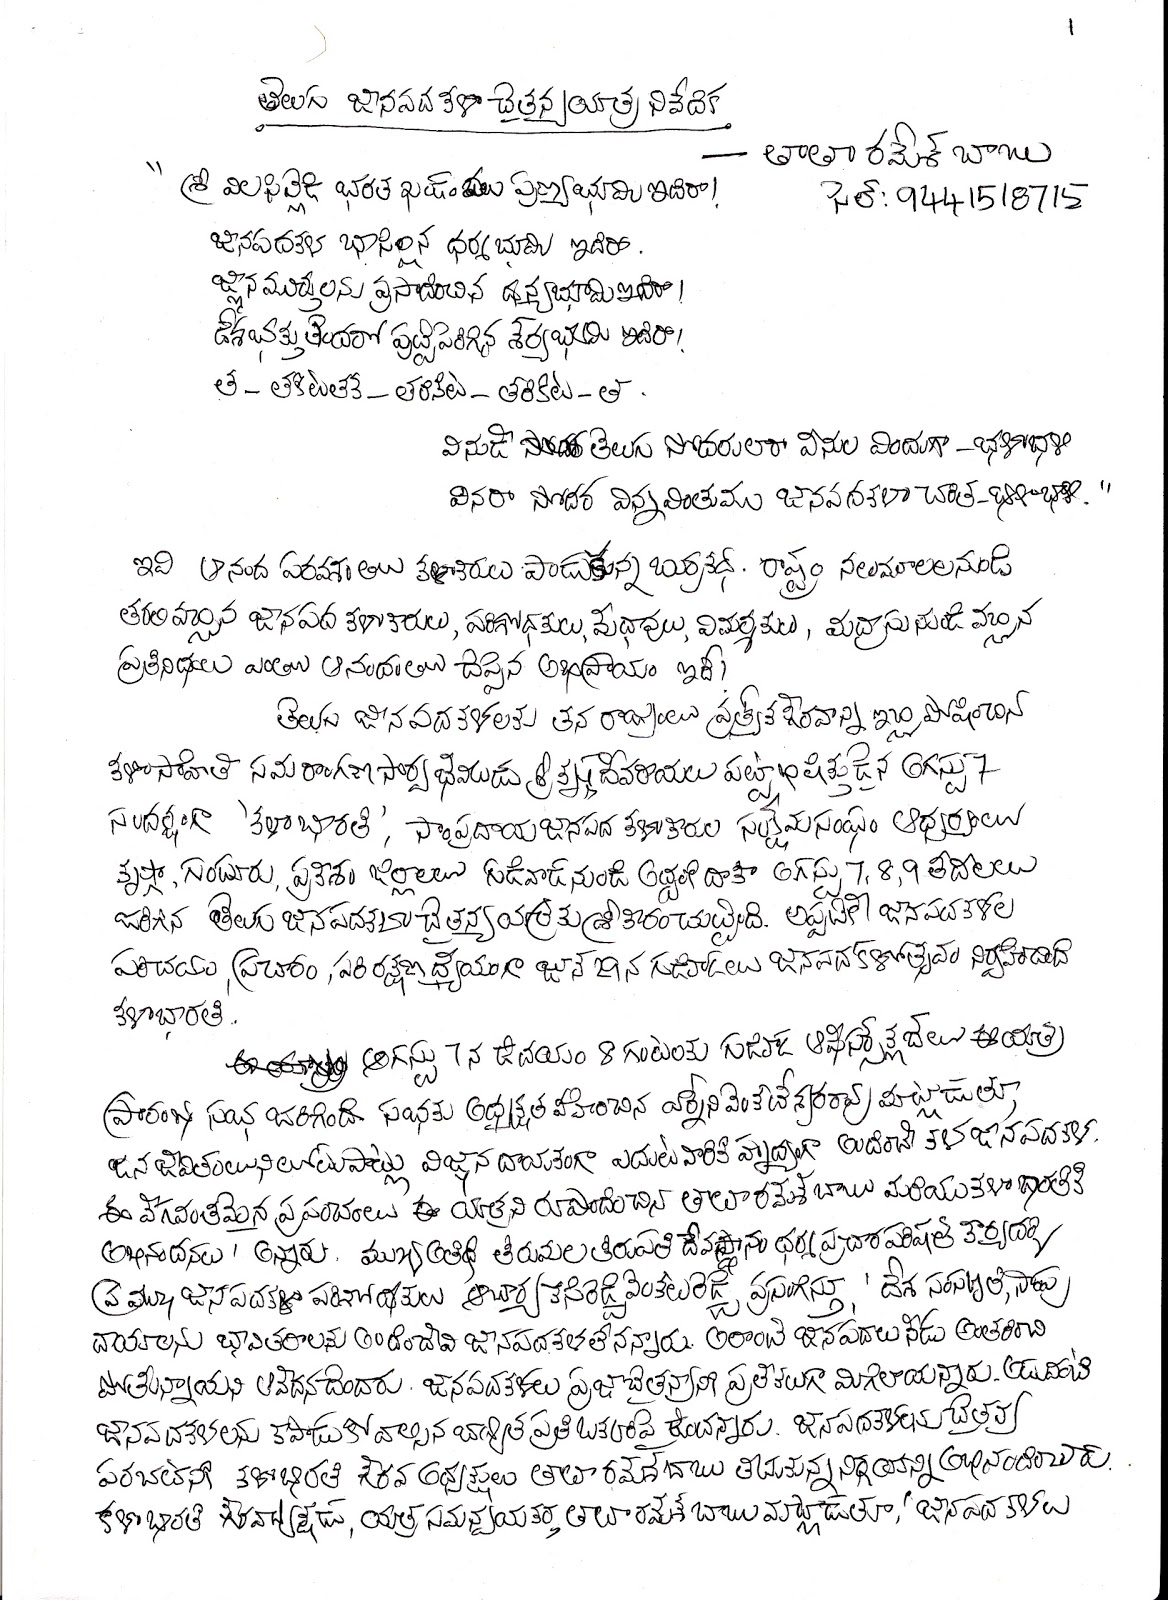 1
తెలుగు జానపద కళా చైతన్య యాత్ర నివేదిక
— తాతా రమేశ్ బాబు
సెల్: 9441518715
" శ్రీ విలసిల్లెడి భరత ఖండంబు పుణ్యభూమి ఇదిరా!
జానపదకళ భాసిల్లిన ధర్మభూమి ఇదిరా.
జ్ఞానమూర్తులను ప్రసాదించిన ధన్యభూమి ఇదిరా!
దేశభక్తులెందరో పుట్టిపెరిగిన శౌర్యభూమి ఇదిరా!
త - తకిటతక - తరికిట - తరికిట - త .
వినుడీ తెలుగు సోదరులారా వీనుల విందుగా - భళాభళి
వినరా సోదర విన్నవింతుము జానపదకళా చరిత - భళాభళి. "
ఇది ఆనంద పరవశులై కళాకారులు పాడుకున్న బుర్రకథ. రాష్ట్రం నలుమూలలనుండి
తరలివచ్చిన జానపద కళాకారులు, పరిశోధకులు, మేధావులు, విమర్శకులు, మద్రాసునుండి వచ్చిన
ప్రతినిధులు ఎంతో ఆనందంతో చెప్పిన అభిప్రాయం ఇదీ!
తెలుగు జానపదకళలకు తన రాజ్యంలో ప్రత్యేక గౌరవాన్ని ఇచ్చి పోషించిన
కళాసాహితీ సమరాంగణ సార్వభౌముడు శ్రీకృష్ణదేవరాయలు పట్టాభిషిక్తుడైన ఆగస్టు 7
సందర్భంగా 'కళాభారతి', సాంప్రదాయ జానపద కళాకారుల సంక్షేమసంఘం ఆధ్వర్యంలో
కృష్ణా, గుంటూరు, ప్రకాశం జిల్లాలలో గుడివాడ నుండి అద్దంకి దాకా ఆగస్టు 7, 8, 9 తేదీలలో
జరిగిన తెలుగు జానపదకళా చైతన్యయాత్రకు శ్రీకారం చుట్టింది. అప్పటికే జానపదకళల
పరిచయం, ప్రచారం, పరిరక్షణ ధ్యేయంగా జూన్ 29న గుడివాడలో జానపదకళోత్సవం నిర్వహించింది
కళాభారతి.
ఆగస్టు 7న ఉదయం 8 గంటలకు గుడివాడ ఆఫీసర్స్ క్లబ్ లో ఈ యాత్ర
ప్రారంభ సభ జరిగింది. సభకు అధ్యక్షత వహించిన వెంకటేశ్వరరావు మాట్లాడుతూ,
జన జీవితంలోని లోటుపాట్లు విజ్ఞానదాయకంగా ఎదుటివారికి హృద్యంగా అందించే కళ జానపదకళ.
ఈ వేగవంతమైన ప్రపంచంలో ఈ యాత్రని రూపొందించిన తాతా రమేశ్ బాబు మరియు కళాభారతికి
అభినందనలు' అన్నారు. ముఖ్యఅతిథి తిరుమల తిరుపతి దేవస్థానం ధర్మప్రచార పరిషత్ కార్యదర్శి
ప్రముఖ జానపదకళా పరిశోధకులు ఆచార్య కసిరెడ్డి వెంకటరెడ్డి ప్రసంగిస్తూ, 'దేశ సంస్కృతి, సాంప్ర
దాయాలను భావితరాలకు అందించేవి జానపదకళలేనన్నారు. అలాంటి జానపదాలు నేడు అంతరించి
పోతున్నాయని ఆవేదనచెందారు. జానపదకళలు ప్రజాచైతన్యానికి ప్రతీకలుగా మిగిలాయన్నారు.
జానపదకళలను కాపాడుకోవాల్సిన బాధ్యత ప్రతిఒక్కరిపై ఉందన్నారు. జానపదకళలను చైతన్య
పరచటానికి కళాభారతి గౌరవ అధ్యక్షులు తాతా రమేశ్ బాబు తీసుకున్న నిర్ణయాన్ని అభినందించారు.
కళాభారతి గౌరవాధ్యక్షుడు, యాత్ర సమన్వయకర్త తాతా రమేశ్ బాబు మాట్లాడుతూ, 'జానపద కళలు